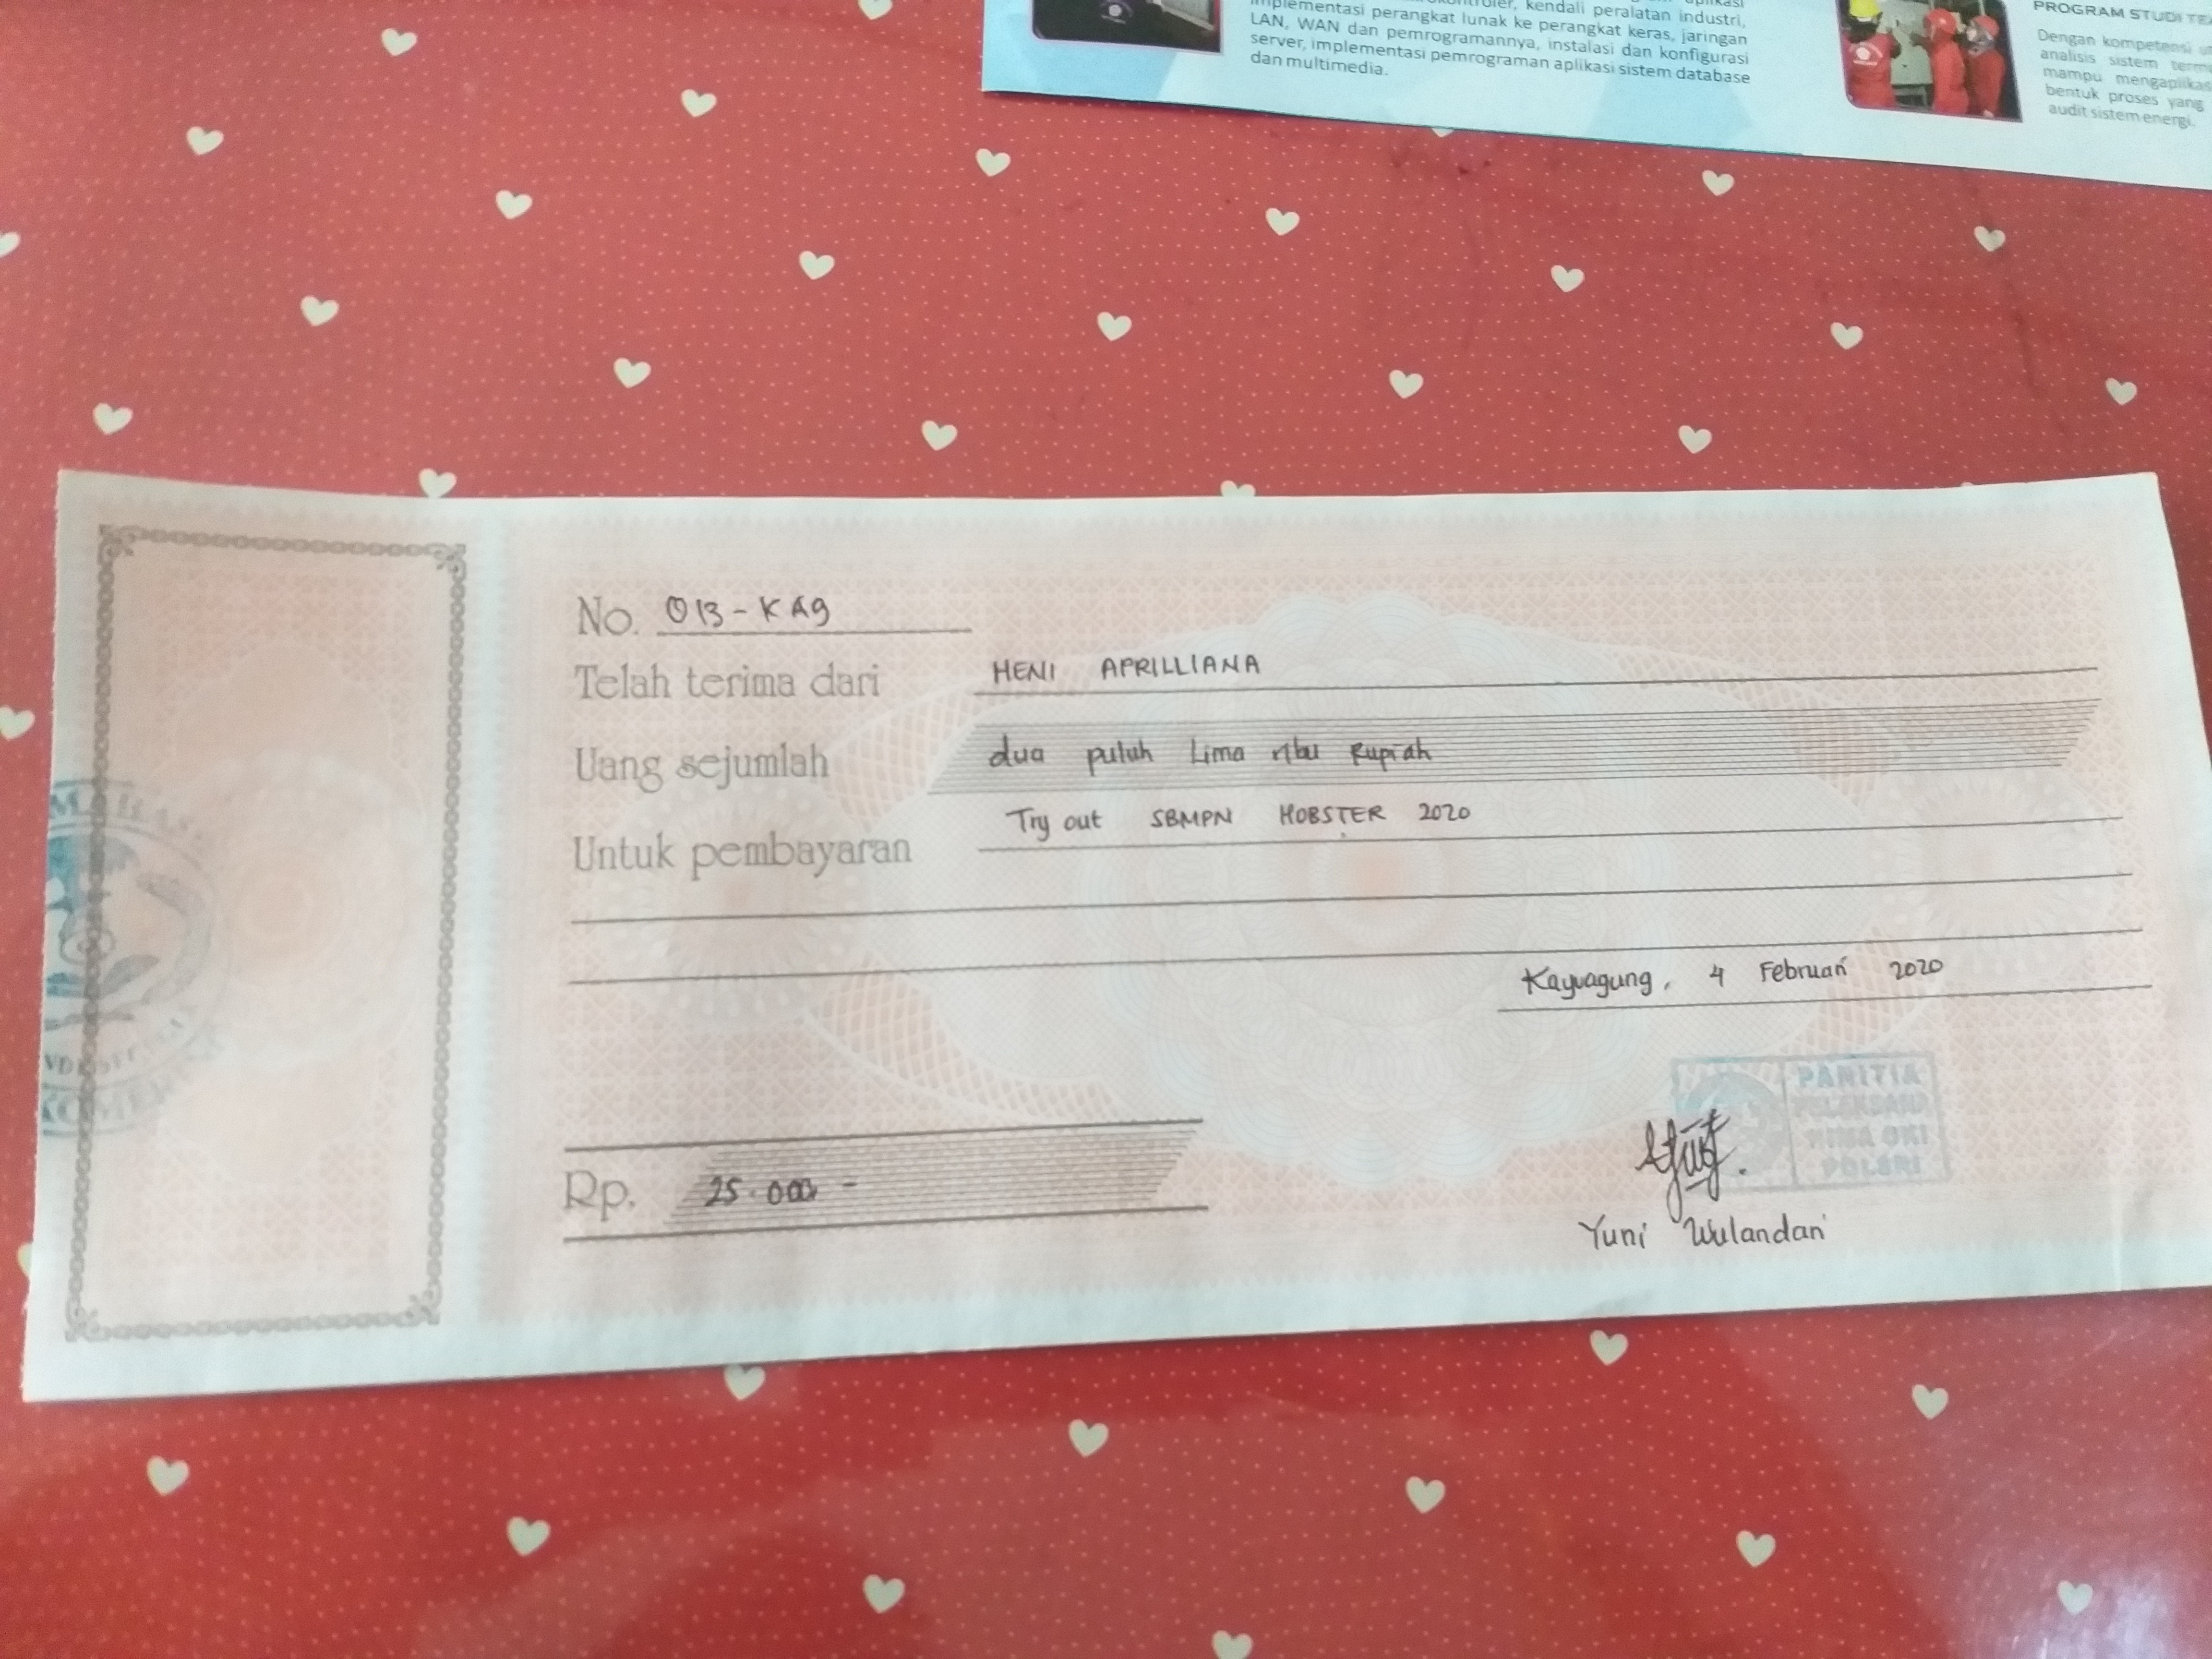 implementasi perangkat lunak ke perangkat keras, jaringan
LAN, WAN dan pemrogramannya, instalasi dan konfigurasi
server, implementasi pemrograman aplikasi sistem database
dan multimedia.
PROGRAM STUDI
Dengan kompetensi
analisis sistem
mampu
bentuk proses yang
audit sistem energi.
No. 013-KAg
Telah terima dari HENI APRILLIANA
Uang sejumlah dua puluh Lima ribu Rupiah
Untuk pembayaran Try out SBMPN HOBSTER 2020
Kayuagung, 4 Februari 2020
PANITIA
POLSRI
Rp. 25.000 -
Yuni Wulandari